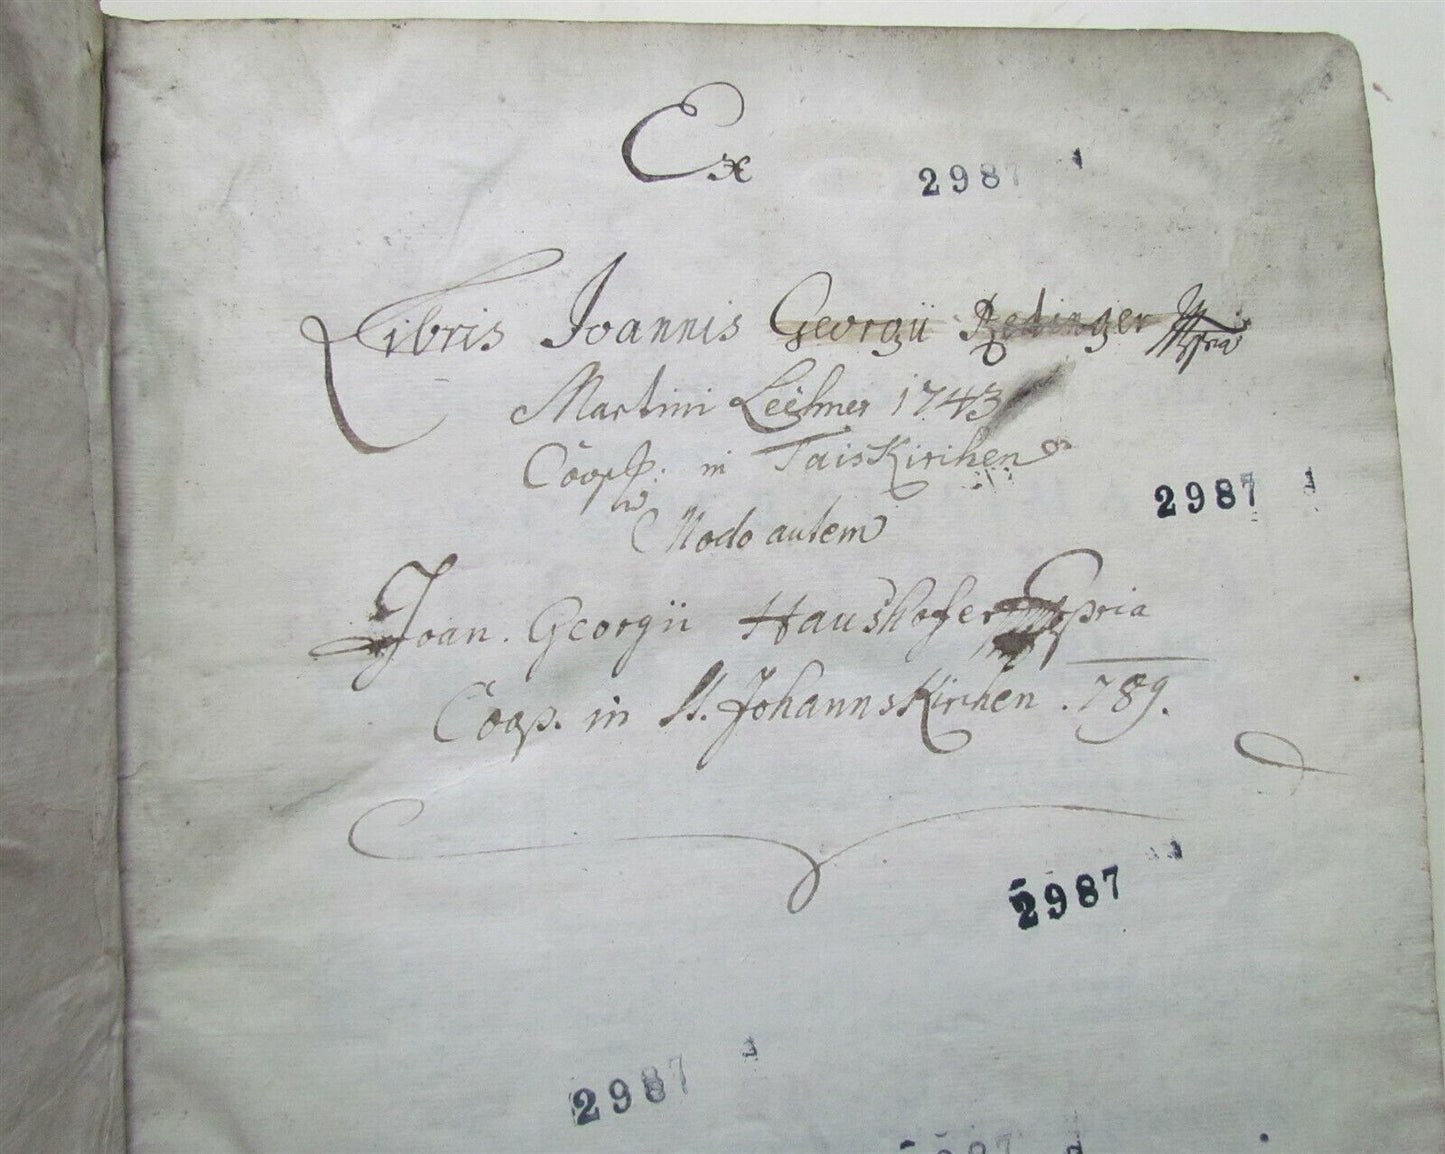 Ex
2987 1
Libris Joannis Georgii Redinger mpria
Martini Lechner 1743
Coop. in Taiskirchen
2987 1
Modo autem
Joan. Georgii Haushofer mpria
Coop. in St. Johannskirchen .789.
2987 1
2987 1